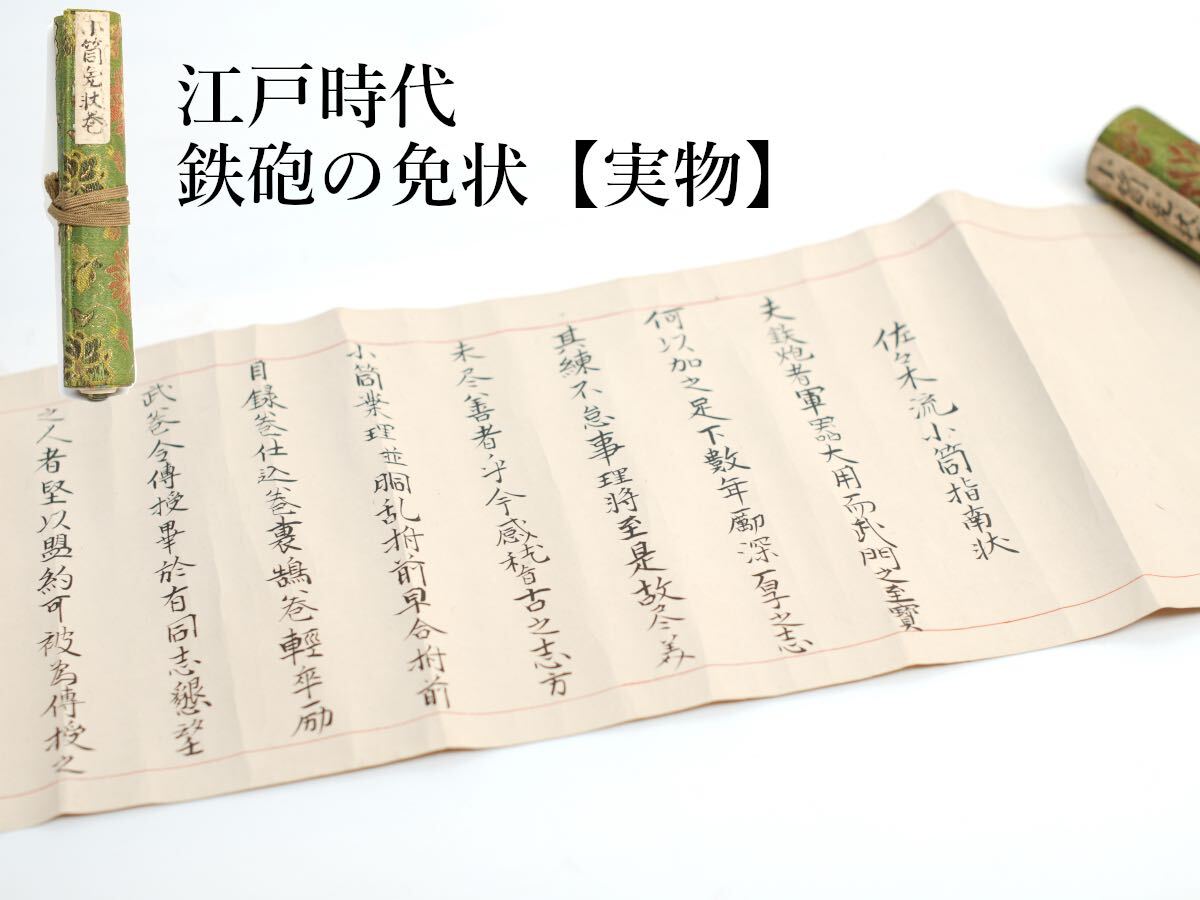 江戸時代
鉄砲の免状【実物】
小筒免状巻
佐々木流小筒指南状
夫鉄炮者軍器大用而武門之至寳
何以加之足下數年勵深厚之志
其練不怠事理將至是故尽美
未尽善者乎今感稽古之志方
小筒業理並胴乱拵前早合拵前
目録巻仕込巻裏鵠巻輕卒励
武巻令傳授畢於有同志懇望
之人者堅以盟約可被為傳授之
小筒免状